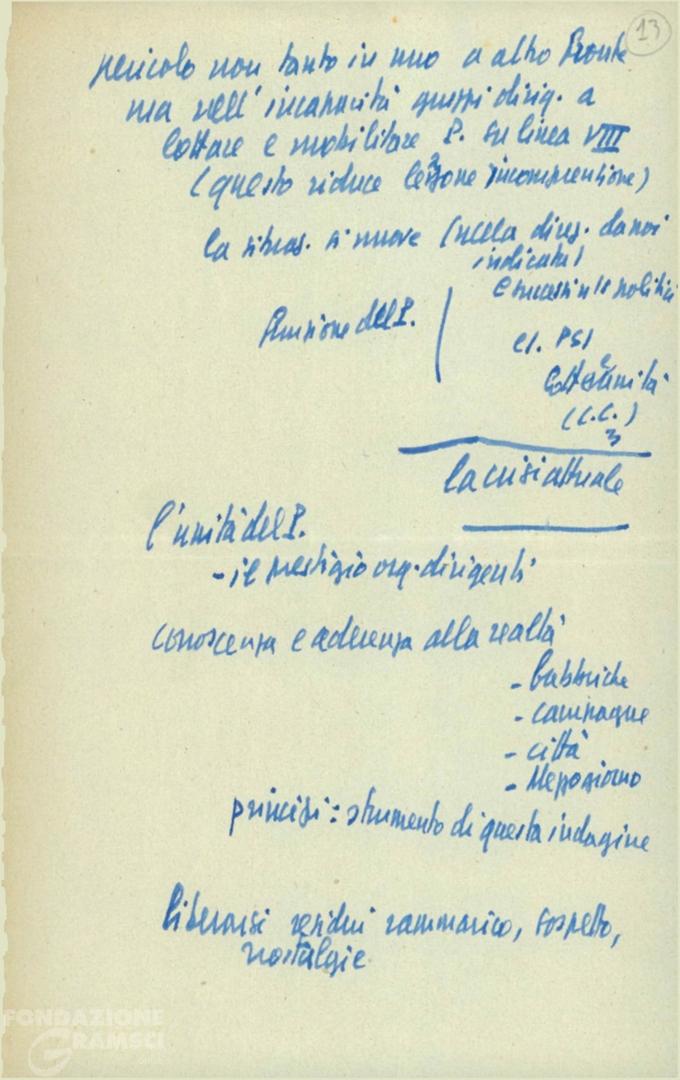 13
pericolo non tanto in uno o altro fronte
ma nell'incapacità gruppi dirig. a
lottare e mobilitare P. su linea VIII
(questo riduce lezione incomprensione)
la situaz. si muove (nella direz. da noi
indicata)
e successi politici
funzione del P.
cl. PSI
lotte e unità
(C.C.)
la crisi attuale
l'unità del P.
- il prestigio org. dirigenti
conoscenza e aderenza alla realtà
- fabbriche
- campagne
- città
- Mezzogiorno
principi: strumento di questa indagine
liberarsi residui rammarico, sospetto,
nostalgie
FONDAZIONE
GRAMSCI